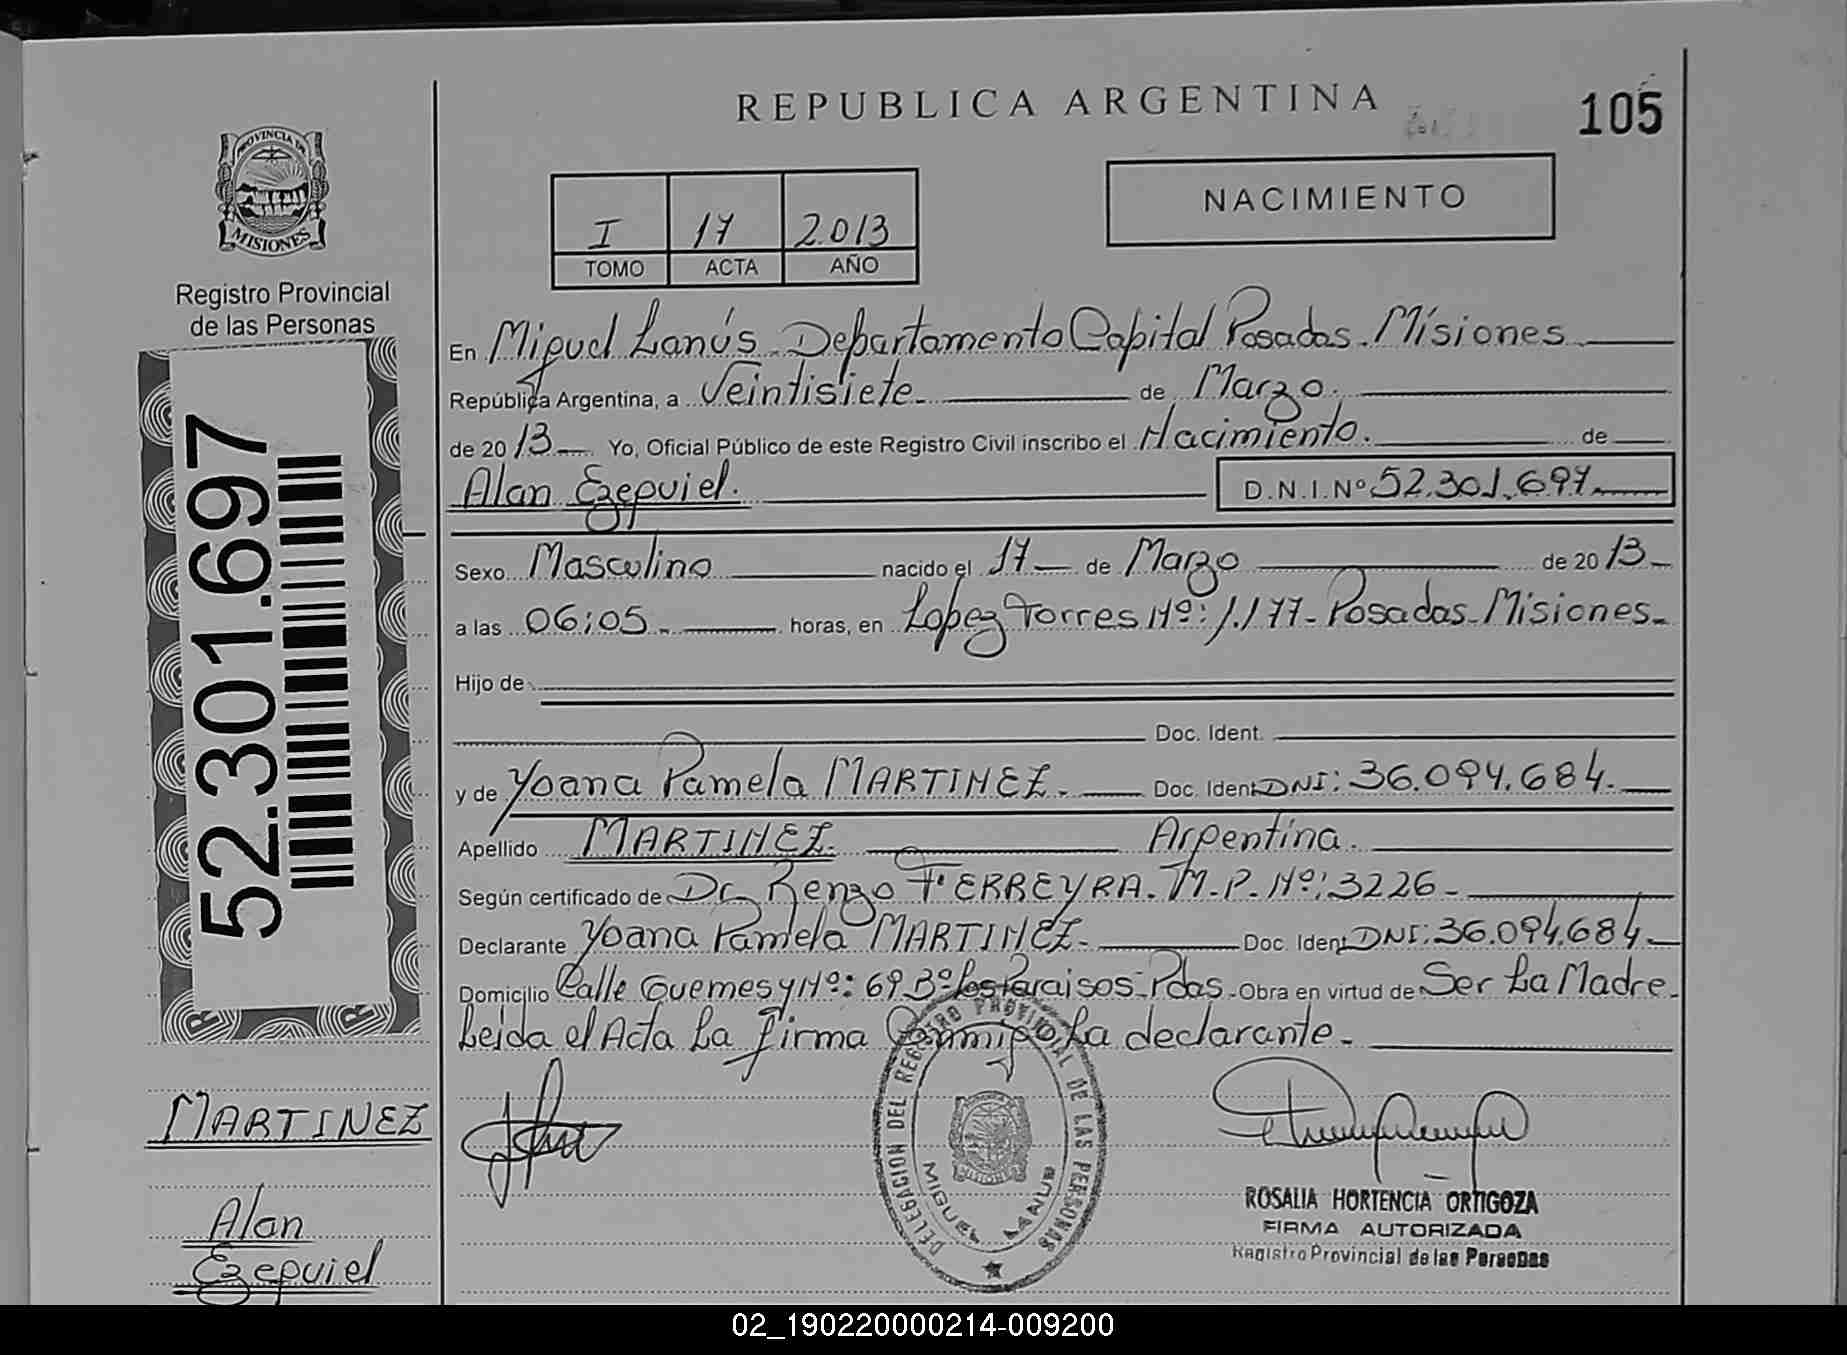 REPUBLICA ARGENTINA
105
PROVINCIA DE
MISIONES
Registro Provincial
de las Personas
52.301.697
I 17 2.013
TOMO ACTA AÑO
NACIMIENTO
En Miguel Lanús. Departamento Capital Posadas. Misiones
República Argentina, a Veintisiete. de Marzo.
de 20 13 Yo, Oficial Público de este Registro Civil inscribo el Nacimiento. de
Alan Ezequiel. D.N.I.Nº 52.301.697
Sexo Masculino nacido el 17 de Marzo de 20 13
a las 06:05 horas, en Lopez Torres Nº: 1.177- Posadas. Misiones.
Hijo de
Doc. Ident.
y de Yoana Pamela MARTINEZ. Doc. Ident. DNI: 36.094.684.
Apellido MARTINEZ. Argentina.
Según certificado de Dr. Renzo FERREYRA. M.P. Nº: 3226-
Declarante Yoana Pamela MARTINEZ- Doc. Ident. DNI: 36.094.684
Domicilio Calle Guemes y Nº: 69 Bº los Paraisos- Pdas. Obra en virtud de Ser La Madre.
Leida el Acta La firma Conmigo La declarante.
MARTINEZ
Alan
Ezequiel
DELEGACION DEL REGISTRO PROVINCIAL DE LAS PERSONAS
MIGUEL LANUS
MISIONES
ROSALIA HORTENCIA ORTIGOZA
FIRMA AUTORIZADA
Registro Provincial de las Personas
02_190220000214-009200